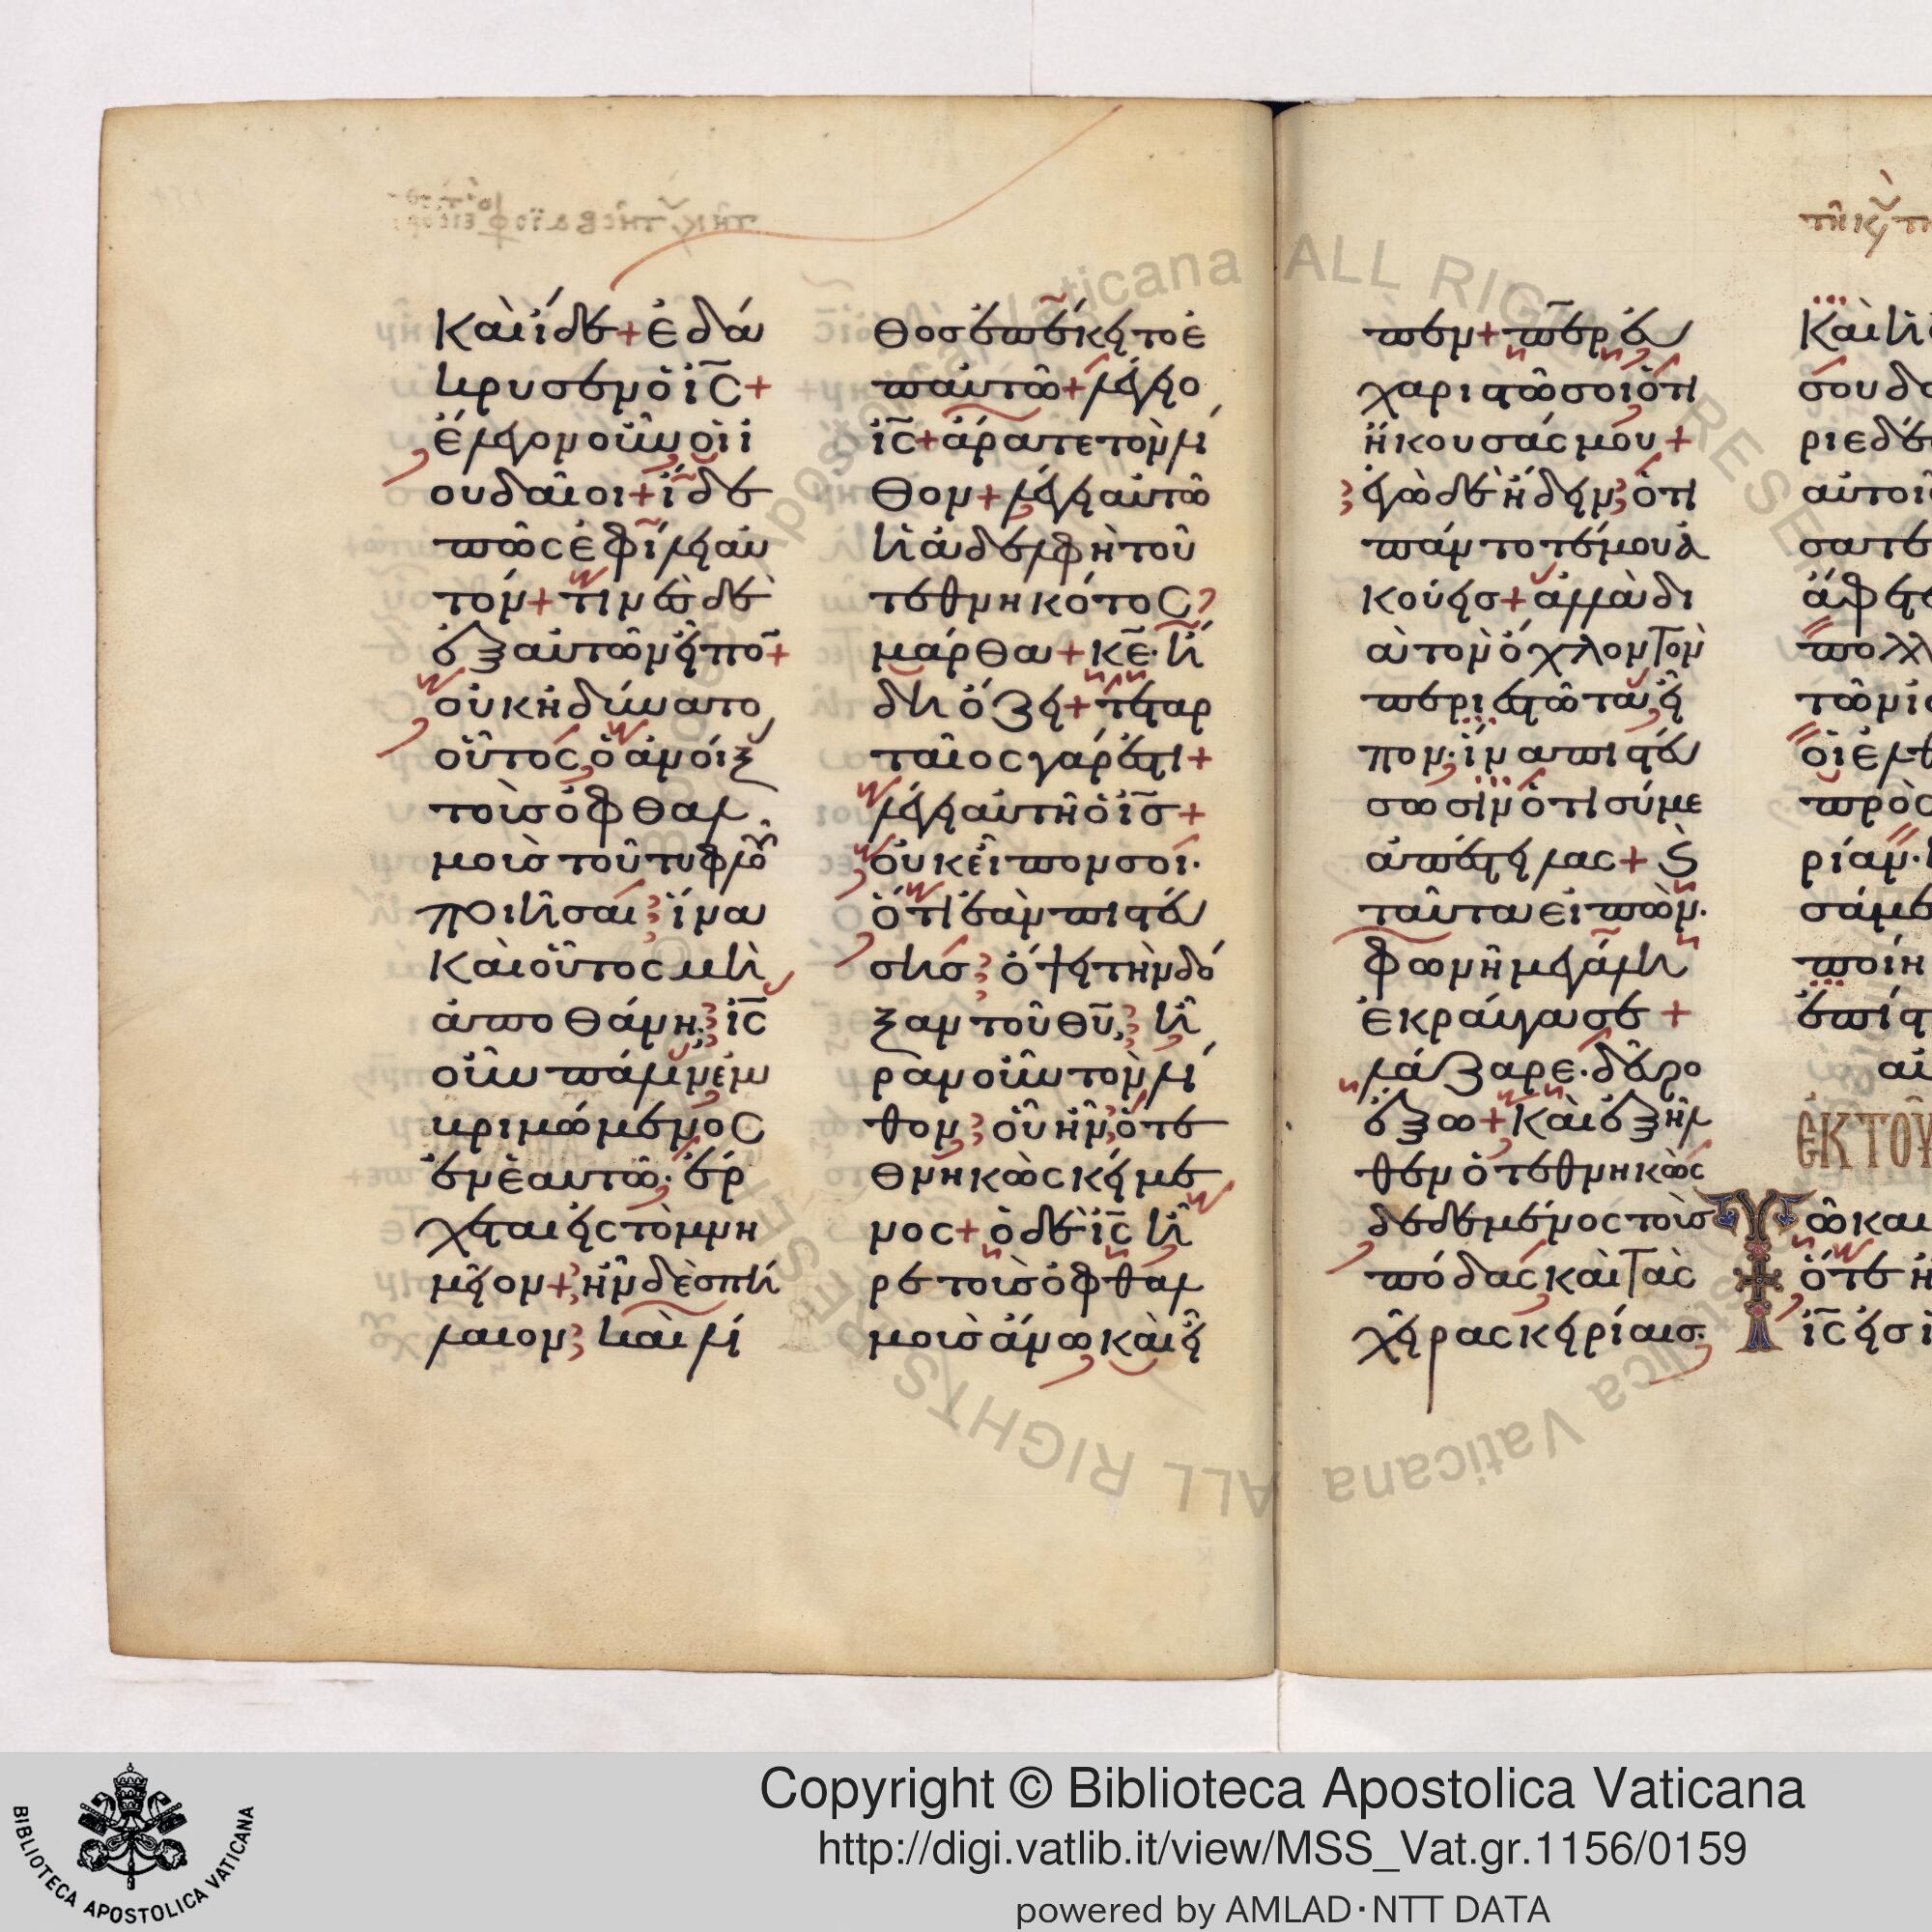 καὶ ἴδε + ἐδά
κρυσεν ὁ ις +
ἔλεγον οὖν οἱ ἰ
ουδαῖοι + ἴδε
πῶς ἐφίλει αυ
τόν + τινὲς δὲ
ἐξ αὐτῶν εἶπον +
οὐκ ἠδύνατο
οὗτος ὁ ἀνοίξ
τοὺς ὀφθαλ
μοὺς τοῦ τυφλοῦ
ποιῆσαι ἵνα
καὶ οὗτος μὴ
ἀποθάνη· ις
οὖν πάλιν ἐμ
βριμώμενος
ἐν ἑαυτῶ· ἔρ
χεται εἰς τὸ μνη
μεῖον + ἦν δὲ σπή
λαιον καὶ λί
θος ἐπέκειτο ἐ
π αυτῶ + λέγει ὁ
ις + ἄρατε τὸν λί
θον + λέγει αὐτῶ
ἡ ἀδελφὴ τοῦ
τεθνηκότος
μάρθα + κε· ἤ
δη ὄζει + τεταρ
ταῖος γάρ ἐστι +
λέγει αὐτῆ ὁ ις +
οὐκ εἶπον σοι·
ὅτι ἐὰν πιστεύ
σης ὄψει τὴν δό
ξαν τοῦ θυ ἦ
ραν οὖν τὸν λί
θον οὗ ἦν ὁ τε
θνηκὼς κείμε
νος + ὁ δὲ ις ἦ
ρε τοὺς ὀφθαλ
μοὺς ἄνω καὶ εἶ
τῆ κυ τη
πεν + περ ευ
χαριστῶ σοι ὅτι
ἤκουσάς μου +
ἐγὼ δὲ ἤδειν ὅτι
πάντοτέ μου ἀ
κούεις + ἀλλὰ δι
ὰ τὸν ὄχλον τὸν
περιεστῶτα εἶ
πον· ἵνα πιστεύ
σωσιν ὅτι σύ με
ἀπέστειλας + καὶ
ταῦτα εἰπὼν·
φωνῆ μεγάλη
ἐκραύγασε +
λάζαρε· δεῦρο
ἔξω + καὶ ἐξῆλ
θεν ὁ τεθνηκὼς
δεδεμένος τοὺς
πόδας καὶ τὰς
χεῖρας κειρίαις·
Καὶ ἡ
σου δ
ριεδε
αὐτοῖ
σατε
ἄφετε
πολλ
τῶν ἰο
οἱ ἐλθ
πρὸς
ρίαν·
σάμε
ποίη
ἐπίστ
ΕΚ ΤΟΥ
Τῶ και
ὅτε ἤ
ις εἰσ
Copyright © Biblioteca Apostolica Vaticana
http://digi.vatlib.it/view/MSS_Vat.gr.1156/0159
powered by AMLAD·NTT DATA
BIBLIOTECA APOSTOLICA VATICANA